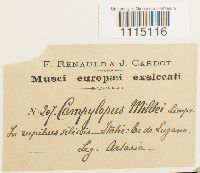 University of Minnesota Herbarium
1115116
F. RENAULD & J. CARDOT
Musci europæi exsiccati
N. 207. Campylopus Mildei Limpr.
In rupibus silicis — Italia: lac de Lugano.
Leg. Artaria